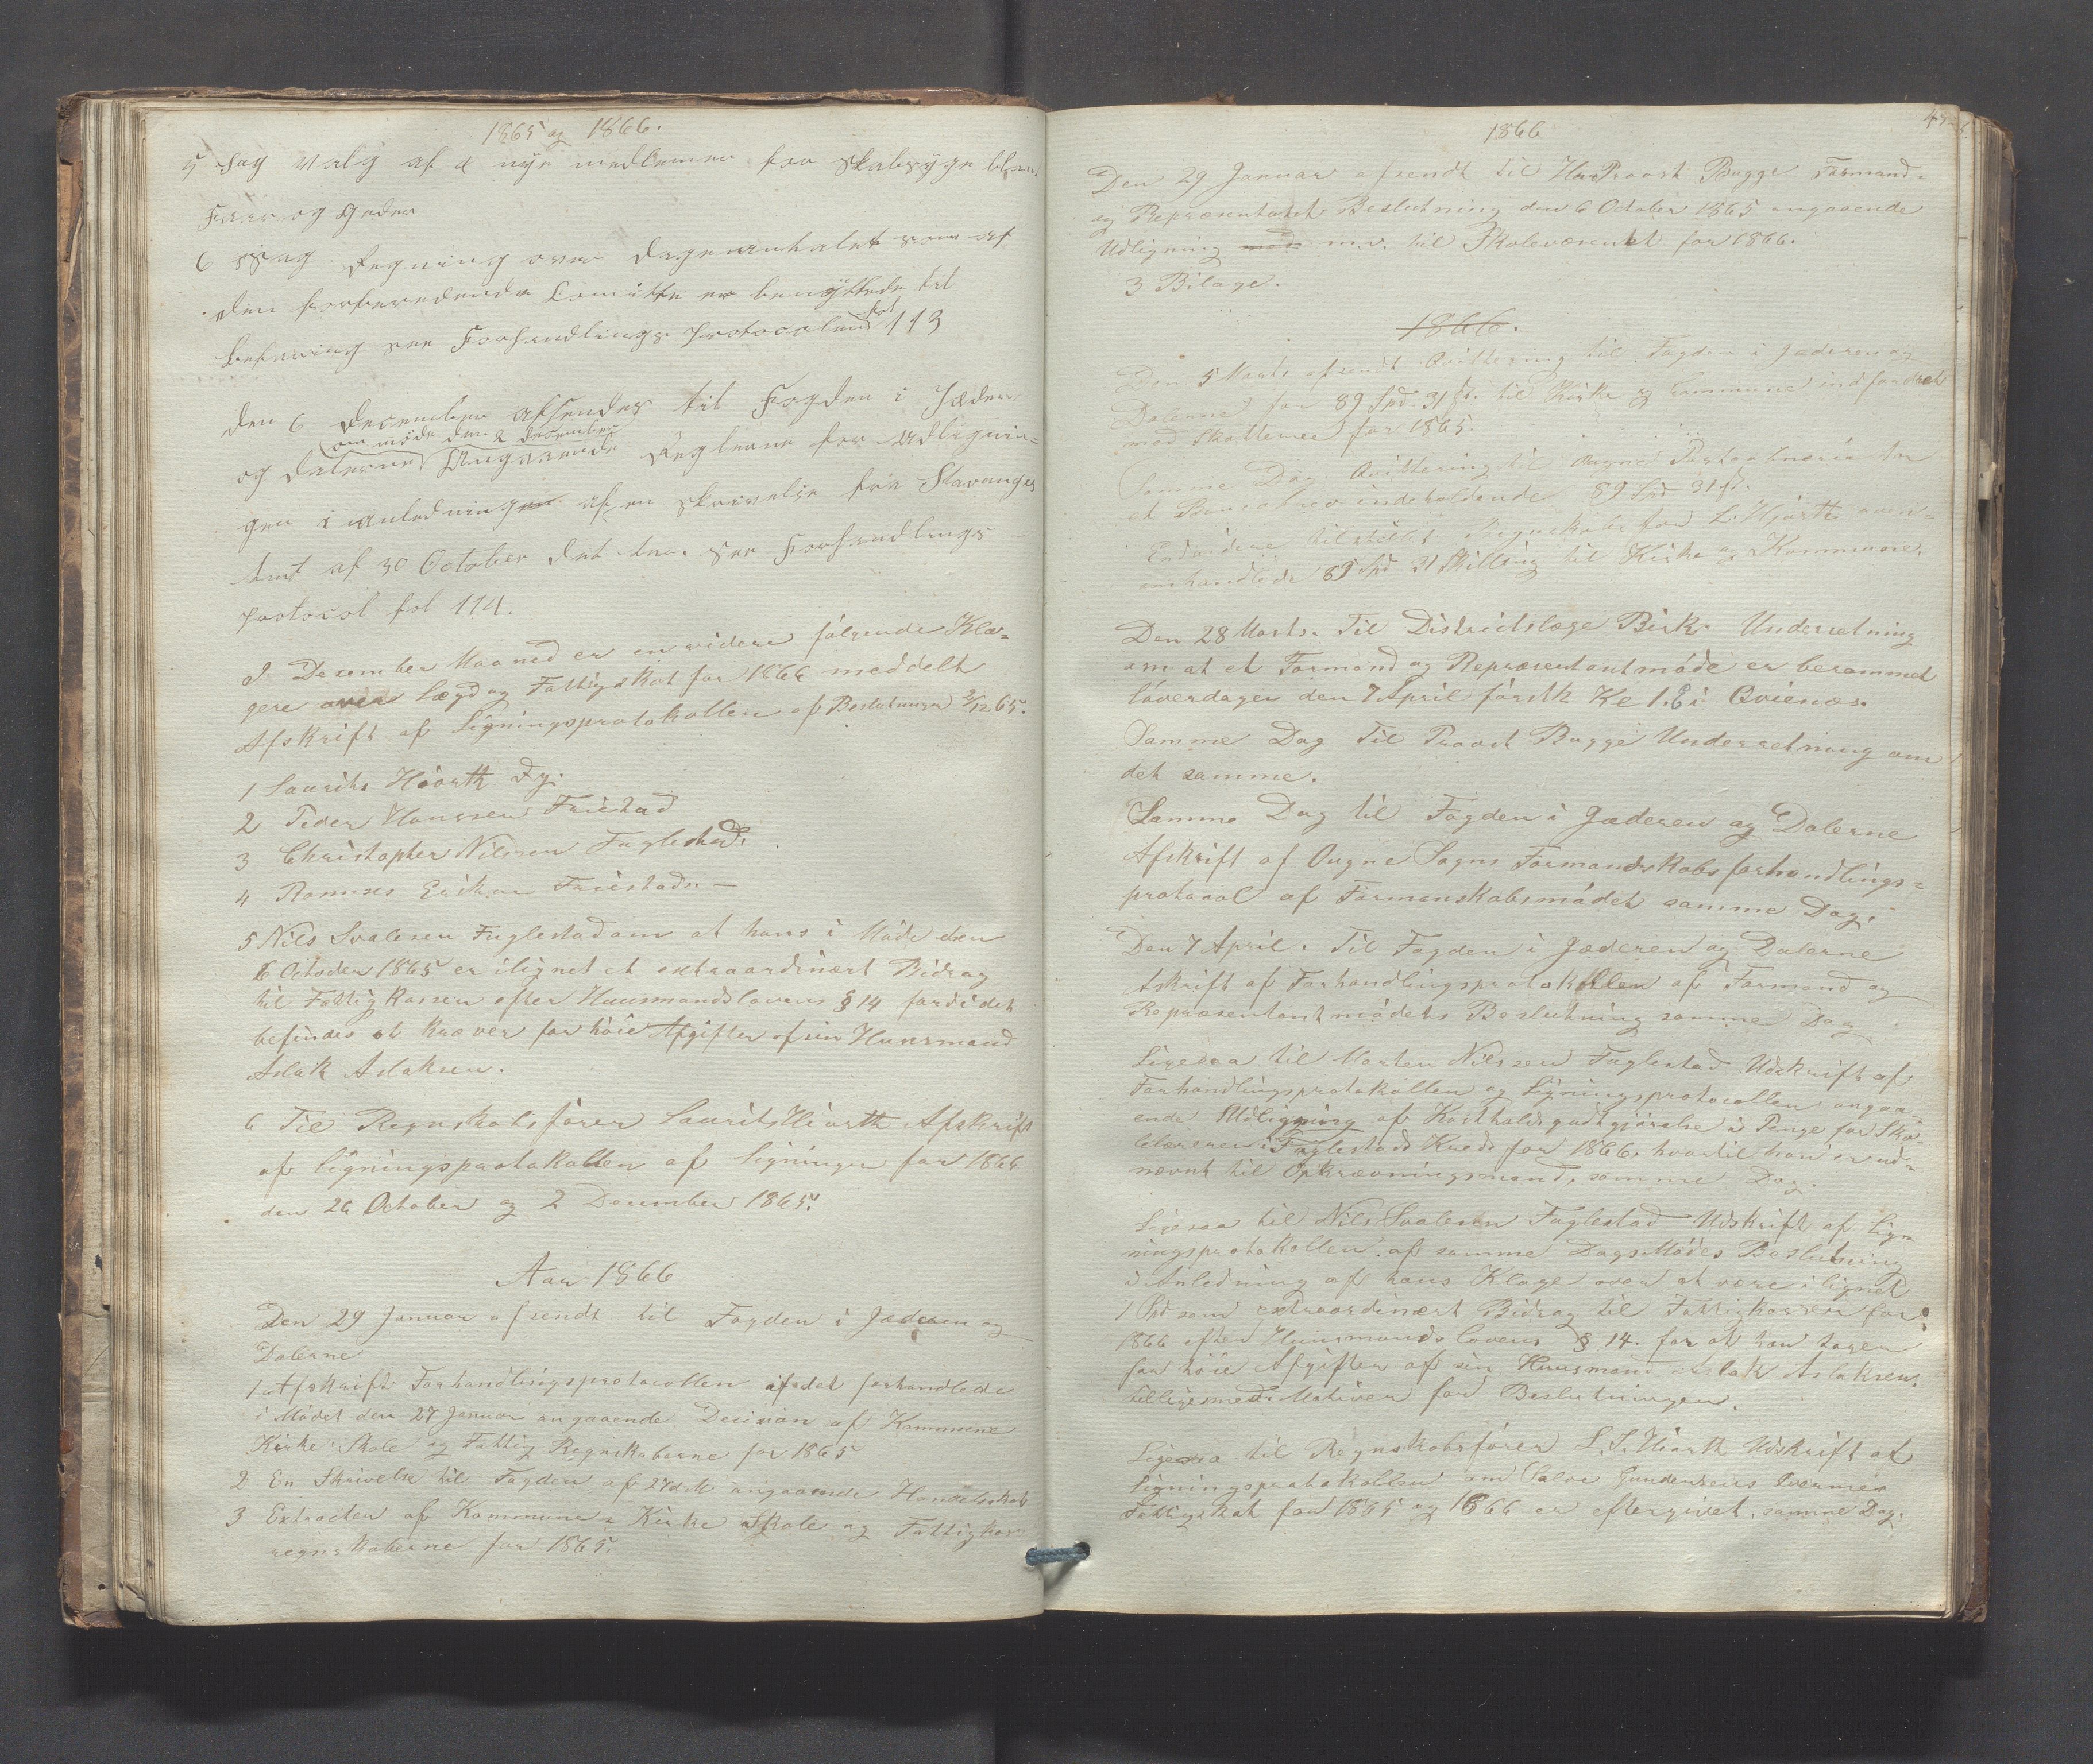 1865 og 1866.
5 Sag Valg af 4 nye medlemer for Skabsyge blant
Faar og Geder
6 Sag Regning over Dagenantalet som af
den forberedende Comitte er benyttede til
befaring see Forhandlings Protocolens fol 113
den 6 December Afsendes til Fogden i Jæderen
om møde den 2 december
og Dalerne Angaaende Reglerne for Udlignin=
gen i Anledningen af en Skrivelse fra Stavanger
Amt af 30 October det. see Forhandlings
Protocol fol 114.
I Desember Maaned er envidere følgende Kla=
gere over Lægd og Fattigskat for 1866 meddelt
Afskrift af Ligningsprotokollen af Beslutninger 2/12 65.
1 Laurits Hiorth
2 Peder Hanssen Friestad
3 Christopher Nilssen Fuglestad.
4 Rasmus Eriksen Friestad. —
5 Nils Svalesen Fuglestad om at hans i Møde den
6 October 1865 er ilignet et extraordinært Bidrag
til Fattigkassen efter Huusmandslovens § 14 fordi det
befindes at Kræver for høie Afgifter af sin Huusmand
Aslak Aslaksen.
6 Til Regnskabsfører Laurits Hiorth Afskrift
af ligningsprotokollen af ligningen for 1866
den 26 October og 2 December 1865.
Aar 1866
Den 29 Januar afsendt til Fogden i Jæderen og
Dalerne
1 Afskrift Forhandlingsprotocollen af det forhandlede
i Mødet den 27 Januar angaaende Decision af Kommune
Kirke Skole og Fattig Regnskaberne for 1865
2 En Skrivelse til Fogden af 27 d.M angaaende Handelsskat
3 Extracten af Kommune= Kirke Skole og Fattigkas=
regnskaberne for 1865.
1866
Den 29 Januar afsendt til Hr Provst Bugge Formand=
og Repræsentant Beslutning den 6 October 1865 angaaende
Udligning med m.v. til Skolevæsenet for 1866.
3 Bilage.
1866.
Den 5 Marts afsendt Qvittering til Fogden i Jæderen og
Dalerne for 89 Spd. 31 s. til Kirke og Kommune indfordret
med Skatterne for 1865.
Samme Dag. Qvittering til Ougne for
et indeholdende 89 Spd 31 s.
Endvidere tilstillet L. Hjorth oven=
omhandlede 89 Spd 31 Skilling til Kirke og Kommune.
Den 28 Marts. Til Distriktslæge Birk. Underretning
om at et Formand og Repræsentantmøde er berammet
løverdagen den 7 April førstk Kl 1. E. i Qvienæs.
Samme Dag Til Provst Bugge Underretning om
det samme.
Samme Dag til Fogden i Jæderen og Dalerne
Afskrift af Ougne Sogns Formandskabsforhandlings=
protocol af Formanskabsmødet samme Dag.
Den 7 April. Til Fogden i Jæderen og Dalerne
Afskrift af Forhandlingsprotokollen af Formand og
Repræsentantmødets Beslutning samme Dag
Ligesaa til Morten Nilssen Fuglestad Udskrift af
Forhandlingsprotokollen og Ligningsprotocollen angaa=
ende Udligning af Kostholdsgodtgjørelse i Penge for Sko=
lelæreren i Fuglestad Kreds for 1866. hvortil han er ud=
nævnt til Opkrævningsmand, samme Dag.
Ligesaa til Nils Svalesen Fuglestad Udskrift af Lig=
ningsprotokollen. af samme Dags Mødes Beslutning
i Anledning af hans Klage over at være ilignet
1 Spd som extraordinært Bidrag til Fattigkassen for
1866 efter Huusmandslovens § 14. for at han tager
for høie Afgifter af sin Huusmand Aslak Aslaksen.
tilligemed Motiver for Beslutningen.
Ligesaa til Regnskabsfører L. S. Hiorth Udskrift af
Ligningsprotokollen om Salve Gundersens
Fattigskat for 1865 og 1866 er eftergivet. samme Dag.